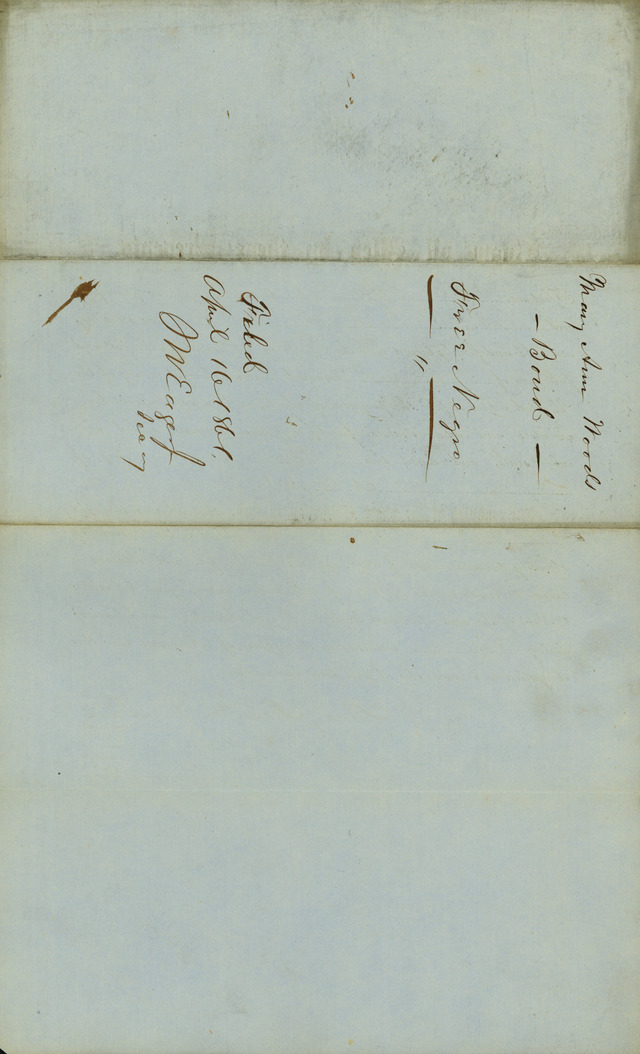 Mary Ann Woods
— Bond —
Free Negro
— " —
Filed
April 16 1861.